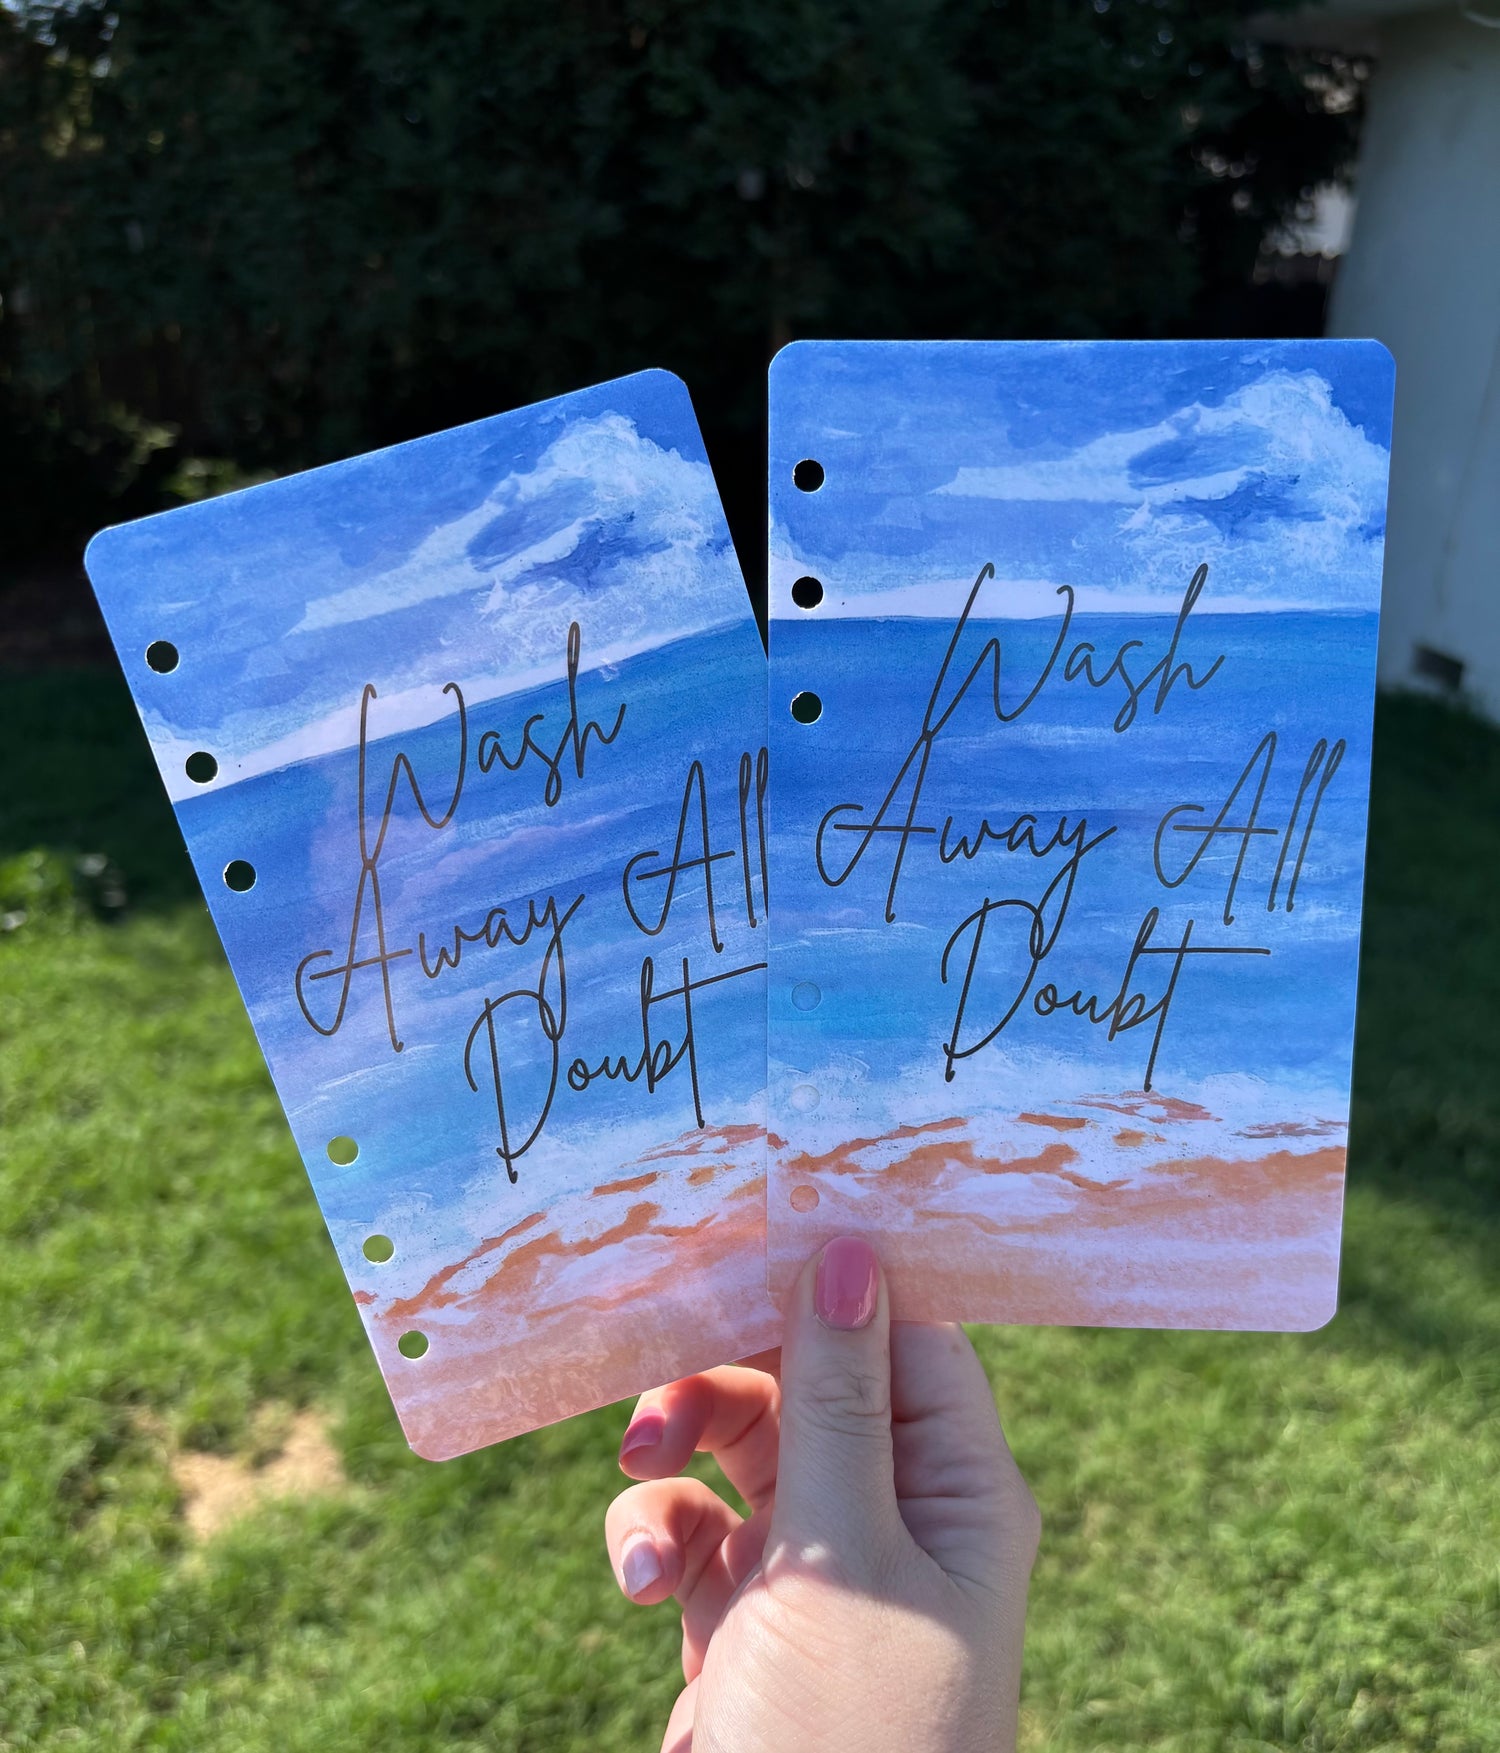 Wash
Away All
Doubt
Wash
Away All
Doubt